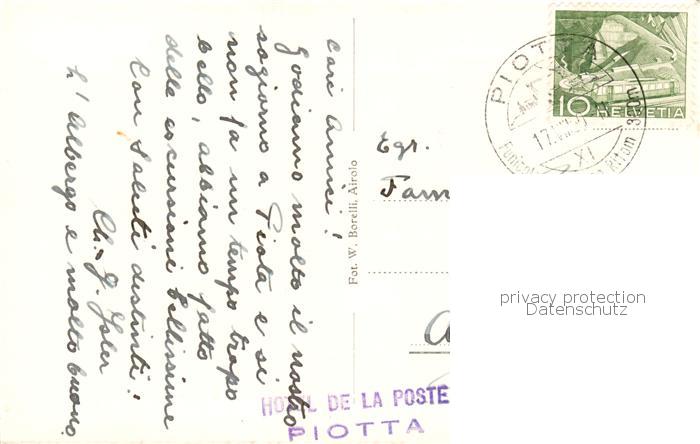 Cari Amici!
Godiamo molto il nostro
sogiorno a Piota e si
non fa un tempo tropo
bello, abbiamo fatto
delle escursioni bellissime
Con Saluti distinti!
L'Albergo e molto buono.
Fot. W. Borelli, Airolo
Egr.
Fam
HOTEL DE LA POSTE
PIOTTA
PIOTTA
10 HELVETIA
17. VII
XI
privacy protection
Datenschutz